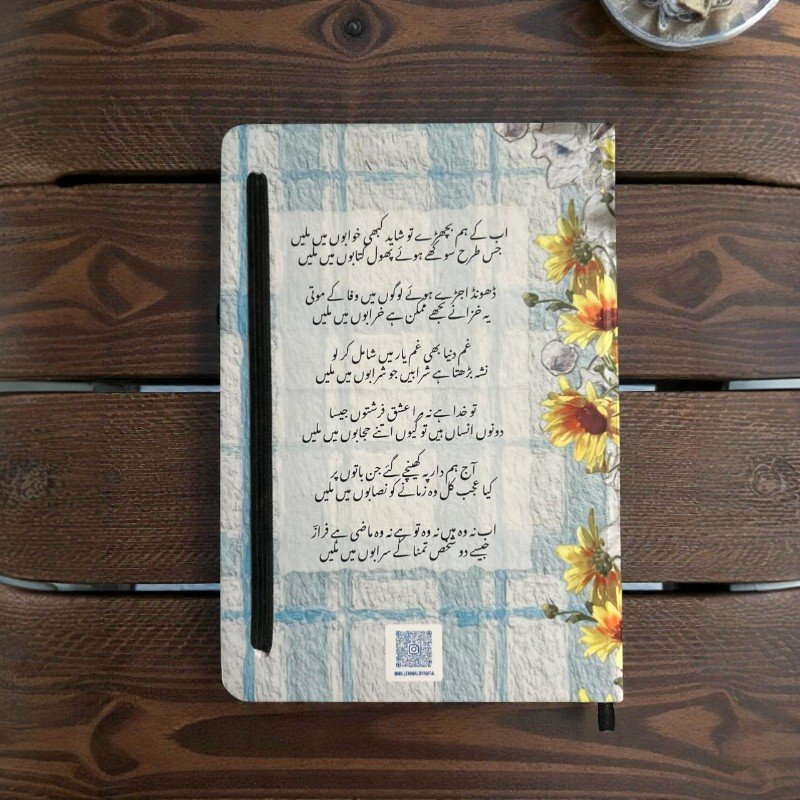 اب کے ہم بچھڑے تو شاید کبھی خوابوں میں ملیں
جس طرح سوکھے ہوئے پھول کتابوں میں ملیں
ڈھونڈ اجڑے ہوئے لوگوں میں وفا کے موتی
یہ خزانے تجھے ممکن ہے خرابوں میں ملیں
غم دنیا بھی غم یار میں شامل کر لو
نشہ بڑھتا ہے شرابیں جو شرابوں میں ملیں
تو خدا ہے نہ مرا عشق فرشتوں جیسا
دونوں انساں ہیں تو کیوں اتنے حجابوں میں ملیں
آج ہم دار پہ کھینچے گئے جن باتوں پر
کیا عجب کل وہ زمانے کو نصابوں میں ملیں
اب نہ وہ میں نہ وہ تو ہے نہ وہ ماضی ہے فرازؔ
جیسے دو شخص تمنا کے سرابوں میں ملیں